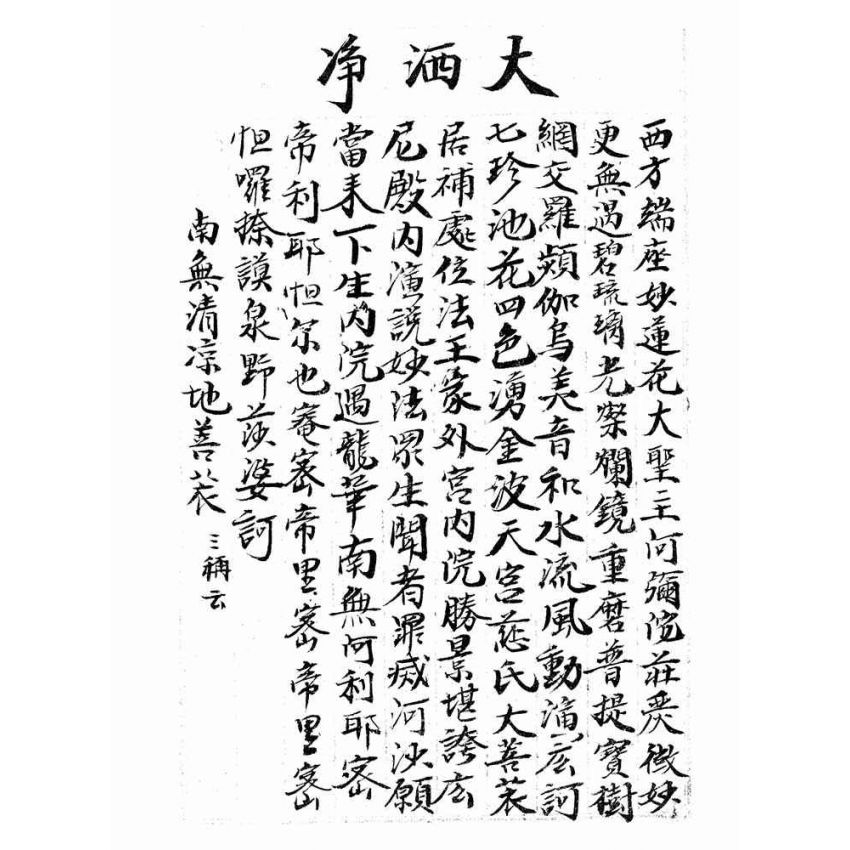 大洒净
西方端座妙蓮花大聖主阿彌陁莊嚴微妙
更無過碧琉璃光燦爛鏡重磨普提寶樹
網交羅頻伽鳥美音和水流風動演広訶
七珍池花四色湧金波天宮慈氏大菩䒾
居補處位法王家外宮内院勝景堪誇広
尼殿内演説妙法眾生聞者罪滅河沙願
當来下生内院遇龍華南無阿利耶密
帝利耶怛尔也菴密帝里密帝里密
怛囉捺謨泉野莎婆訶
南無清凉地菩䒾 三稱云